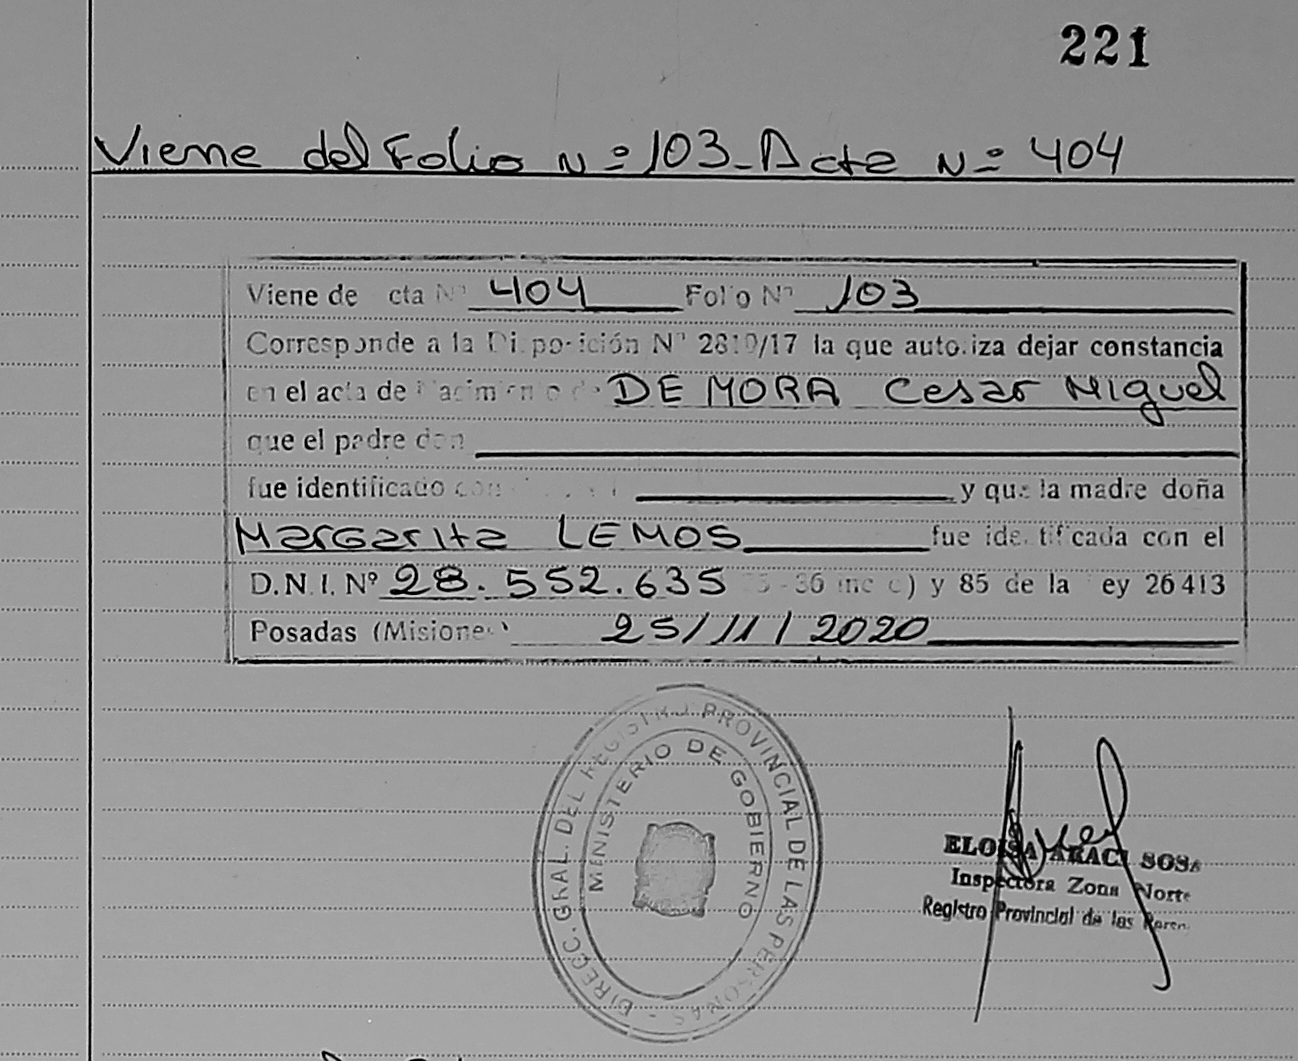 221
Viene del Folio Nº 103 - Acta Nº 404
Viene de cta Nº 404 Folio Nº 103
Corresponde a la Disposición Nº 2810/17 la que autoriza dejar constancia
en el acta de Nacimiento de DE MORA Cesar Miguel
que el padre don
fue identificado con y que la madre doña
Margarita LEMOS fue identificada con el
D.N.I. Nº 28.552.635 36 inc c) y 85 de la ey 26413
Posadas (Misiones) 25/11/2020
DIRECC. GRAL. DEL REGISTRO PROVINCIAL DE LAS PERSONAS -
MINISTERIO DE GOBIERNO
ELOISA ARACI SOSA
Inspectora Zona Norte
Registro Provincial de las